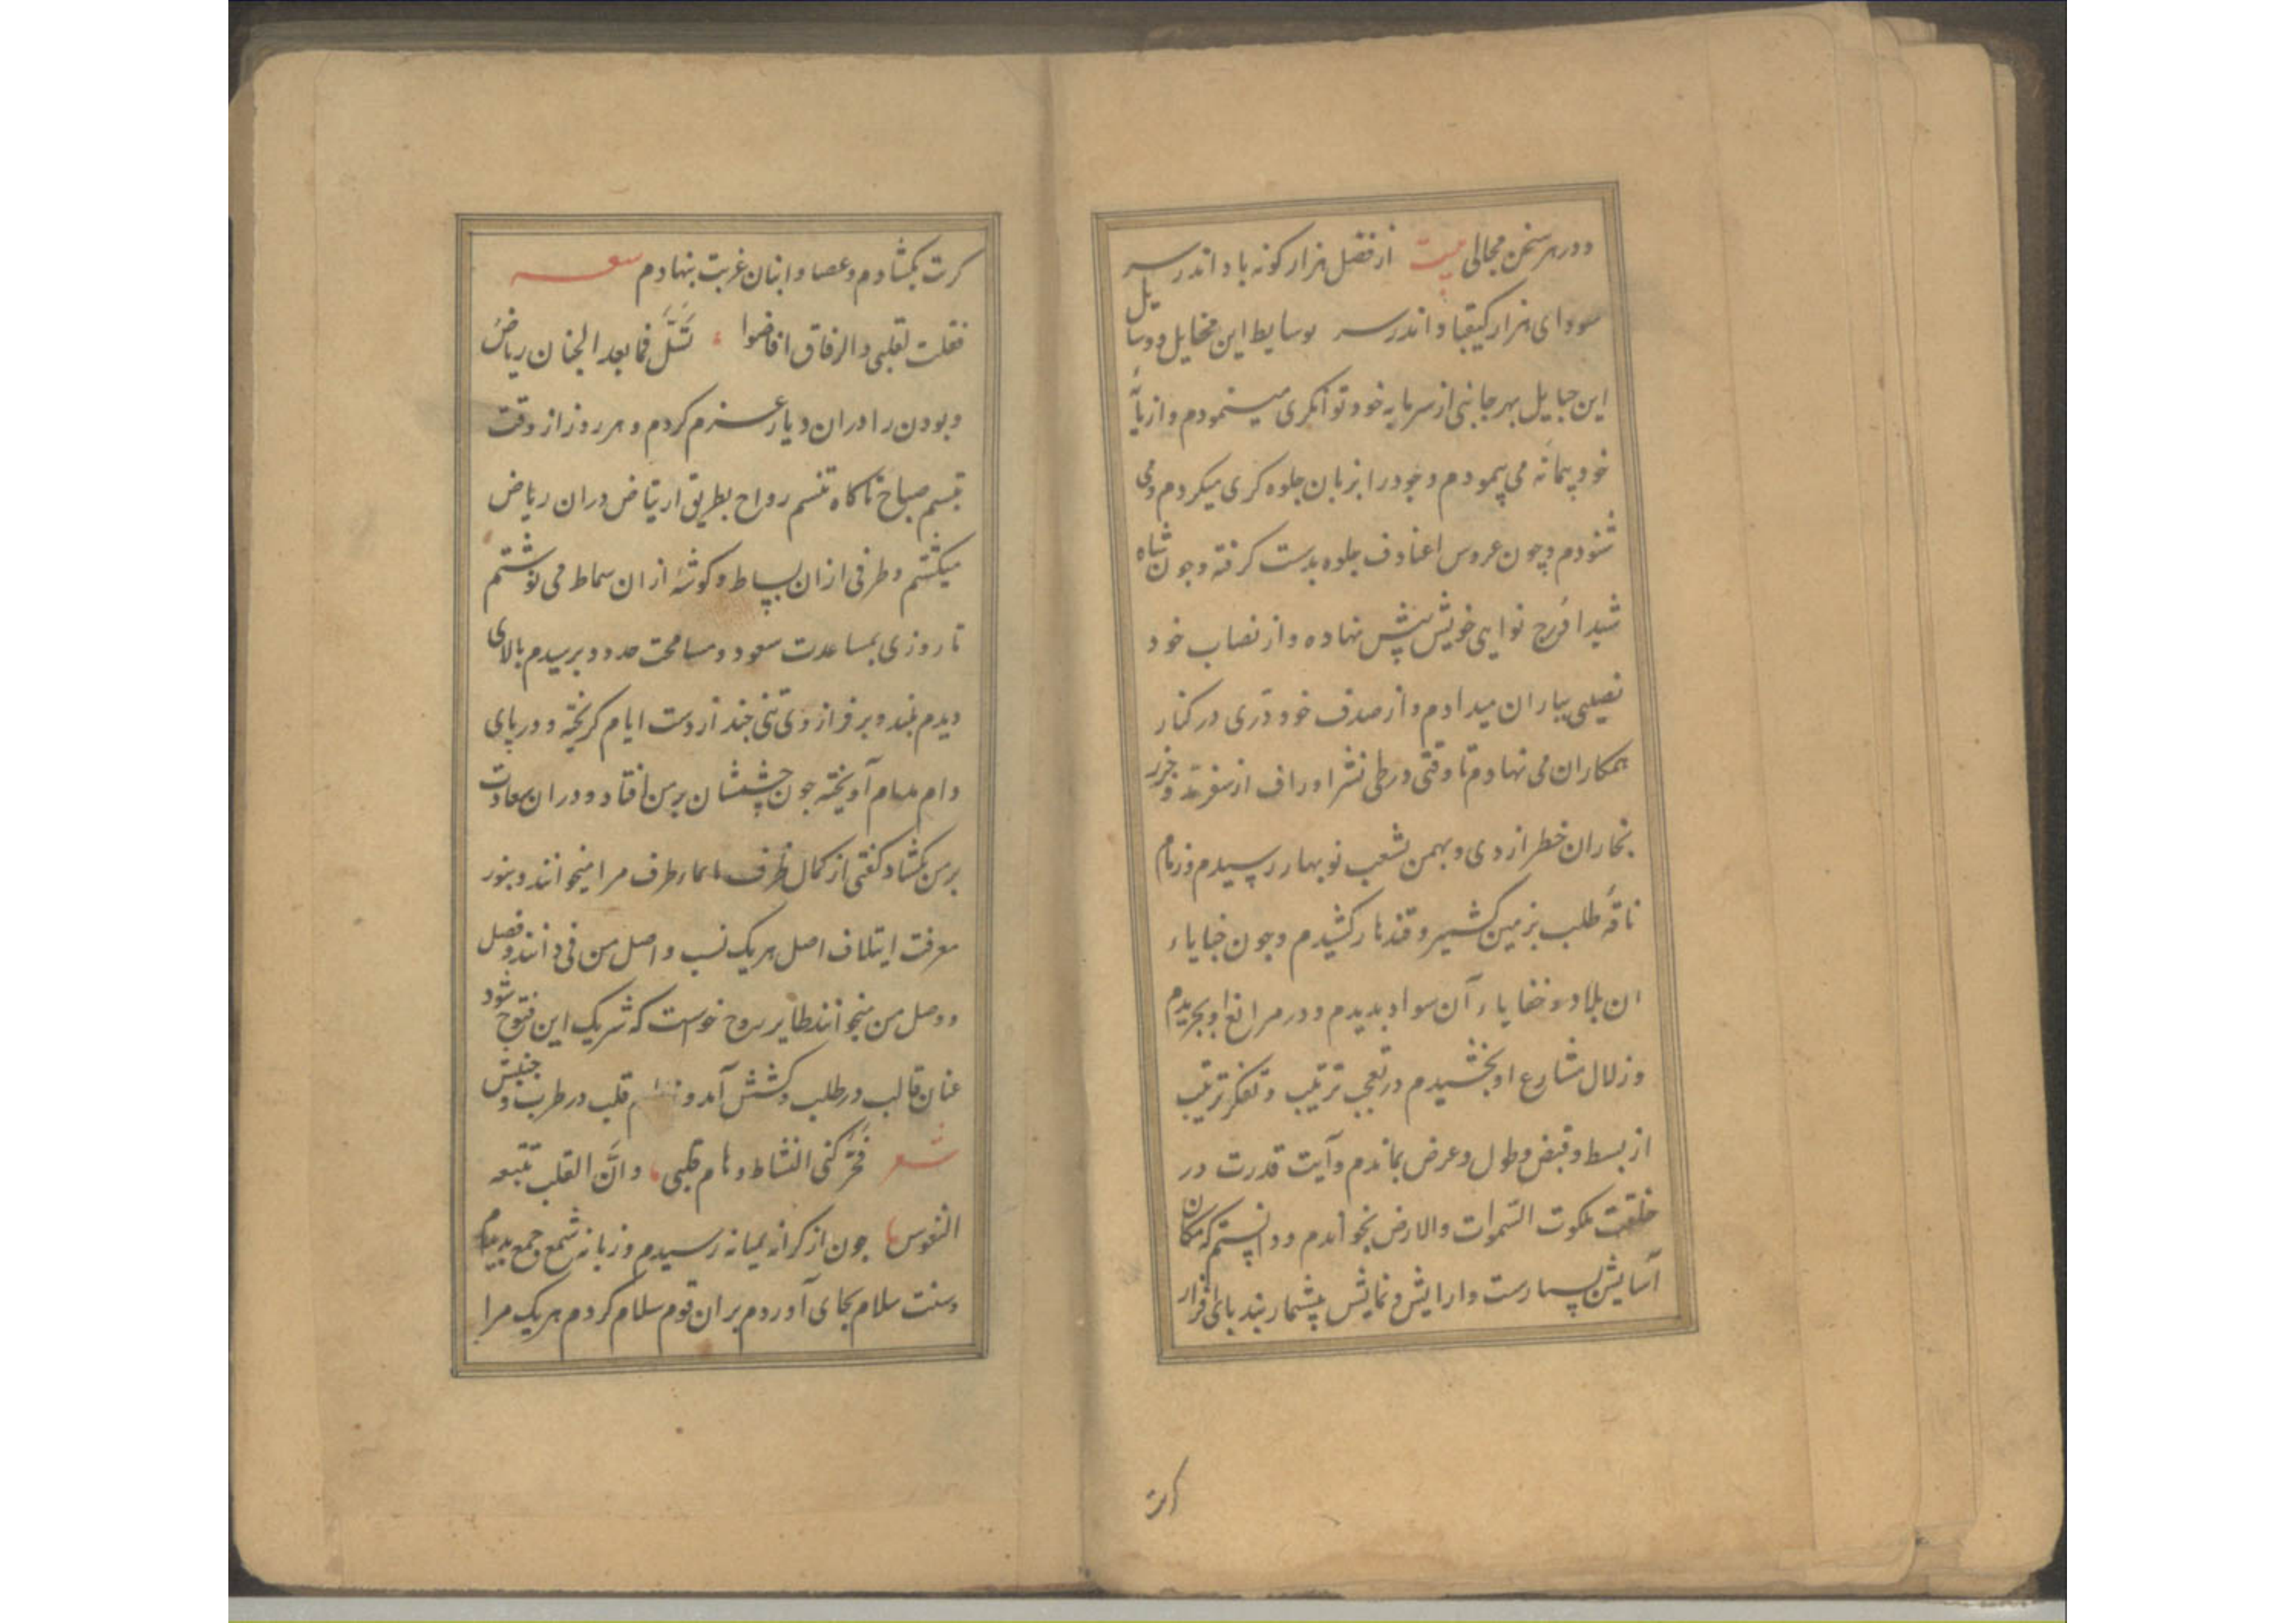 ودر هر سخن مجالی بیت از فضل هزار کونه باد اندر سر
سودای هزار کیقباد اندر سر بوسایط این مخایل ووسایل
این حبایل بهر جانبی از سرمایه خود توانکری مینمودم واز
خود پیمانه می پیمودم وخود را بزبان جلوه کری میکردم ومی
شنودم وچون عروس اعناوف جلوه بدست کرفته وچون شاه
شیدا نوایی خویش پیش نهاده واز نصاب خود
نصیبی بیاران میدادم واز صدف خود دری در کنار
همکاران می نهادم تا وقتی در طی نشر اوراف از
بخاران خطر از دی وبهمن بشعب نوبهار رسیدم وزمام
ناقه طلب بزمین کشمیر وقندهار کشیدم وچون خبایاء
ان بلاد وخفایاء آن سواد بدیدم ودر مراتع او بچریدم
وزلال مشارع او بخشیدم در تعجب ترتیب وتفکر ترتیب
از بسط وقبض وطول وعرض بماندم وآیت قدرت در
خلقت ملکوت السموات والارض بخواندم ودانستم که مکان
آسایش بسیارست وارایش ونمایش بیشمار بند بای افزار
کرت
کرت بکشادم وعصا وانبان غربت بنهادم شعر
فقلت لقلبی والرفاق افاضوا تسل فما بعد الجنان ریاض
وبودن را دران دیار عزم کردم وهر روز از وقت
تبسم صباح تا کاه تنسم رواح بطریق ارتیاض دران ریاض
میکشتم وطرفی ازان بساط وکوشه ازان سماط می نوشتم
تا روزی بمساعدت سعود ومسامحت حدود برسیدم بالای
دیدم بلند وبر فراز وی تنی چند از دست ایام کریخته ودر پای
دام مدام آویخته چون چشمشان بر من افتاد ودران سعادت
بر من بکشاد کفتی از کمال ظرف باماء طرف مرا میخوانند وبنور
معرفت ایتلاف اصل هر یک نسب واصل من می دانند وفصل
ووصل من میخوانند طایر روح خواست که شریک این فتوح شود
عنان قالب در طلب وکشش آمد قلب در طرب وجنبش
شعر فحرکنی النشاط وهام قلبی وان القلب تتبعه
النفوس چون از کرانه بمیانه رسیدم وزبانه شمع وجمع بدیدم
وسنت سلام بجای آوردم بران قوم سلام کردم هر یک مرا